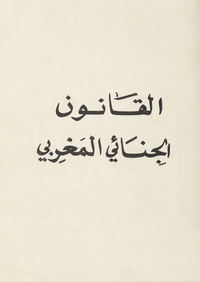 القانون
الجِنَائي المَغرِبي